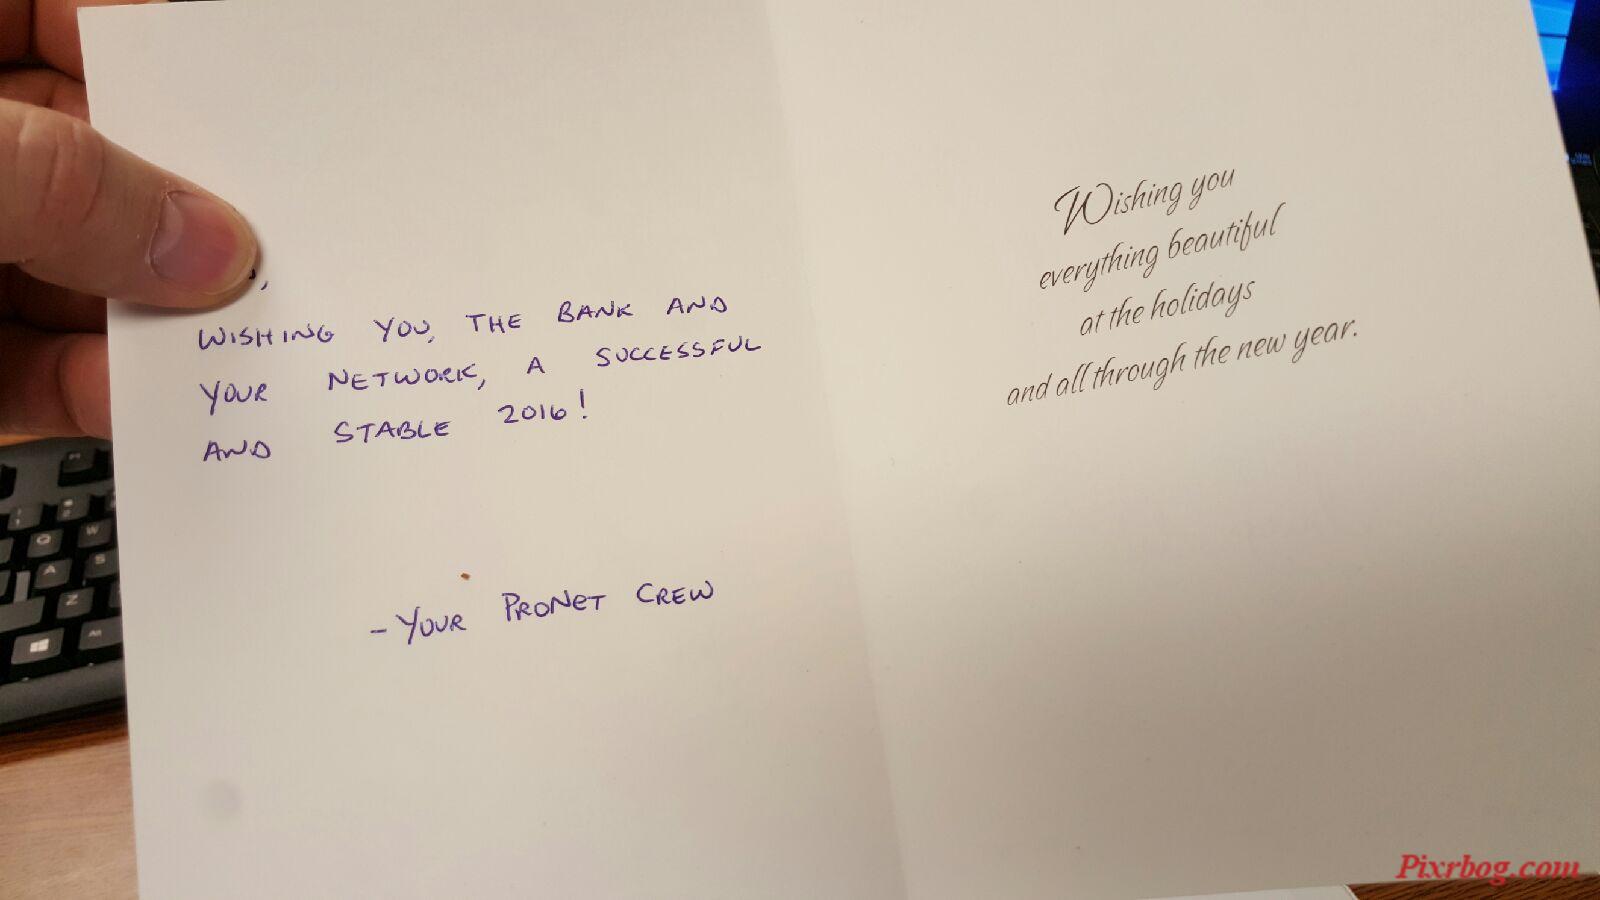 WISHING YOU, THE BANK AND
YOUR NETWORK, A SUCCESSFUL
AND STABLE 2016!
- YOUR PRONET CREW
Wishing you
everything beautiful
at the holidays
and all through the new year.
Q W
A S
Z
Alt
Pixrbog.com